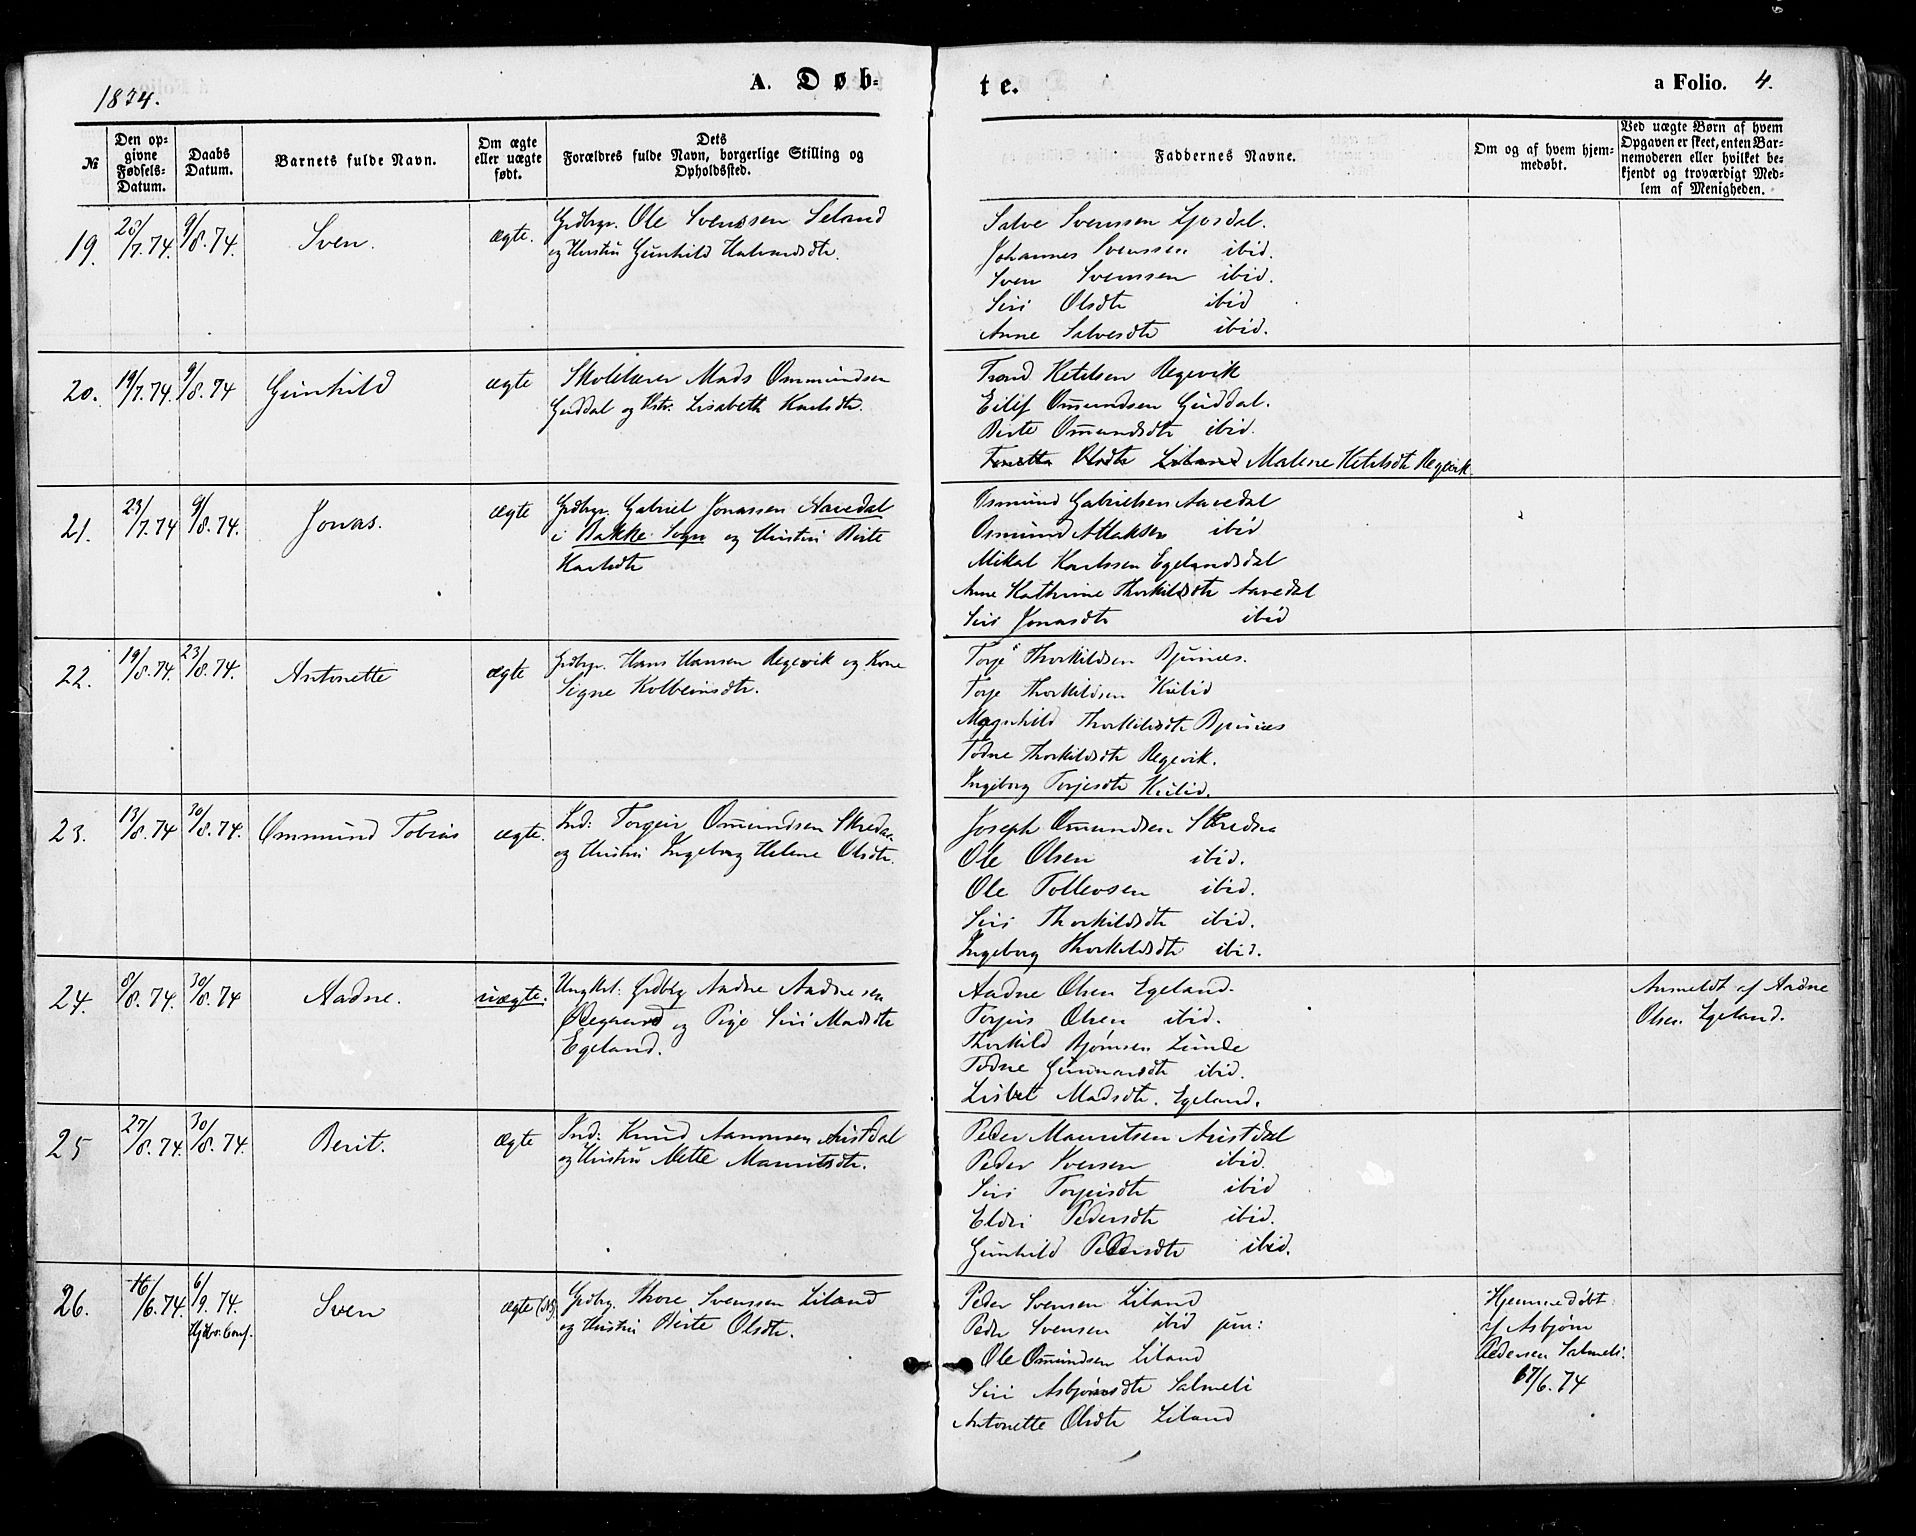 1874.
A. Døb-
te.
a Folio. 4.
№
Den op-
givne
Fødsels-
Datum.
Daabs
Datum.
Barnets fulde Navn.
Om ægte
eller uægte
født.
Dets
Forældres fulde Navn, borgerlige Stilling og
Opholdssted.
Faddernes Navne.
Om og af hvem hjem-
medøbt.
Ved uægte Børn af hvem
Opgaven er skeet, enten Bar-
nemoderen eller hvilket be-
kjendt og troværdigt Med-
lem af Menigheden.
19. 23/7.74. 9/8.74. Sven. ægte. Grdbgr. Ole Svenssen Seland
og Hustru Gunhild Halvardsdtr.
Salve Svenssen Ljosdal.
Johannes Svenssen ibid.
Sven Svenssen ibid.
Siri Olsdtr ibid
Anne Salvesdtr ibid.
20. 19/7.74. 9/8.74 Gunhild ægte Skolelærer Mads Ommundsen
Guddal og Hstr. Lisabeth Karlsdtr.
Trond Ketelsen Regevik
Eilif Omundsen Guddal.
Birte Omundsdtr ibid.
Tonette Olsdtr Liland Malene Ketelsdtr Regevik
21. 23/7.74 9/8.74. Jonas. ægte Grdbgr. Gabriel Jonassen Aavedal
i Bakke Sogn og Hustru Birte
Karlsdtr
Osmund Gabrielsen Aavedal
Osmund Atlaksen ibid
Mikal Karlssen Egelandsdal
Anne Kathrine Thorkildsdtr Aavedal
Siri Jonasdtr ibid
22. 19/8.74. 23/8.74. Antonette ægte Grdbgr. Hans Hansen Regevik og Kone
Signe Kolbeinsdtr.
Torje Thorkildsen Bjunes.
Torje Thorkildsen Kulid
Magnhild Thorkildsdtr Bjunes
Todne Thorkildsdtr Regevik.
Ingeborg Torjesdtr Kulid.
23. 13/8.74 30/8.74. Ommund Tobias ægte. Ind: Torgeir Omundsen Skreda
og Hustru Ingeborg Helene Olsdtr.
Joseph Omundsen Skreda
Ole Olsen ibid.
Ole Tollevsen ibid.
Siri Thorkildsdtr ibid.
Ingeborg Thorkildsdtr ibid.
24. 8/8.74. 30/8.74 Aadne. uægte. Ungkrl. Grdbrg Aadne Aadnesen
Ødegaard og Pige Siri Madsdtr
Egeland.
Aadne Olsen Egeland.
Torjus Olsen ibid.
Thorkild Bjørnsen Lunde
Todne Gunnarsdtr ibid.
Lisbet Madsdtr. Egeland.
Anmeldt af Aadne
Olsen Egeland.
25 27/8.74. 30/8.74. Berit. ægte Ind: Knud Aanonsen Austdal
og Hustru Mette Mauritsdtr.
Peder Mauritsen Austdal
Peder Iversen ibid.
Siri Torjusdtr ibid
Eldri Pedersdtr ibid.
Gunhild Pedersdtr ibid.
26. 16/6.74. 6/9.74. Sven ægte Grdbrg. Thore Svenssen Liland
og Hustru Birte Olsdtr.
Peder Svensen Liland
Peder Svensen ibid jun:
Ole Omundsen Liland
Siri Asbjørnsdtr Salmeli
Antonette Olsdtr Liland
Hjemmedøbt
af Asbjørn
Pedersen Salmeli.
17/6.74